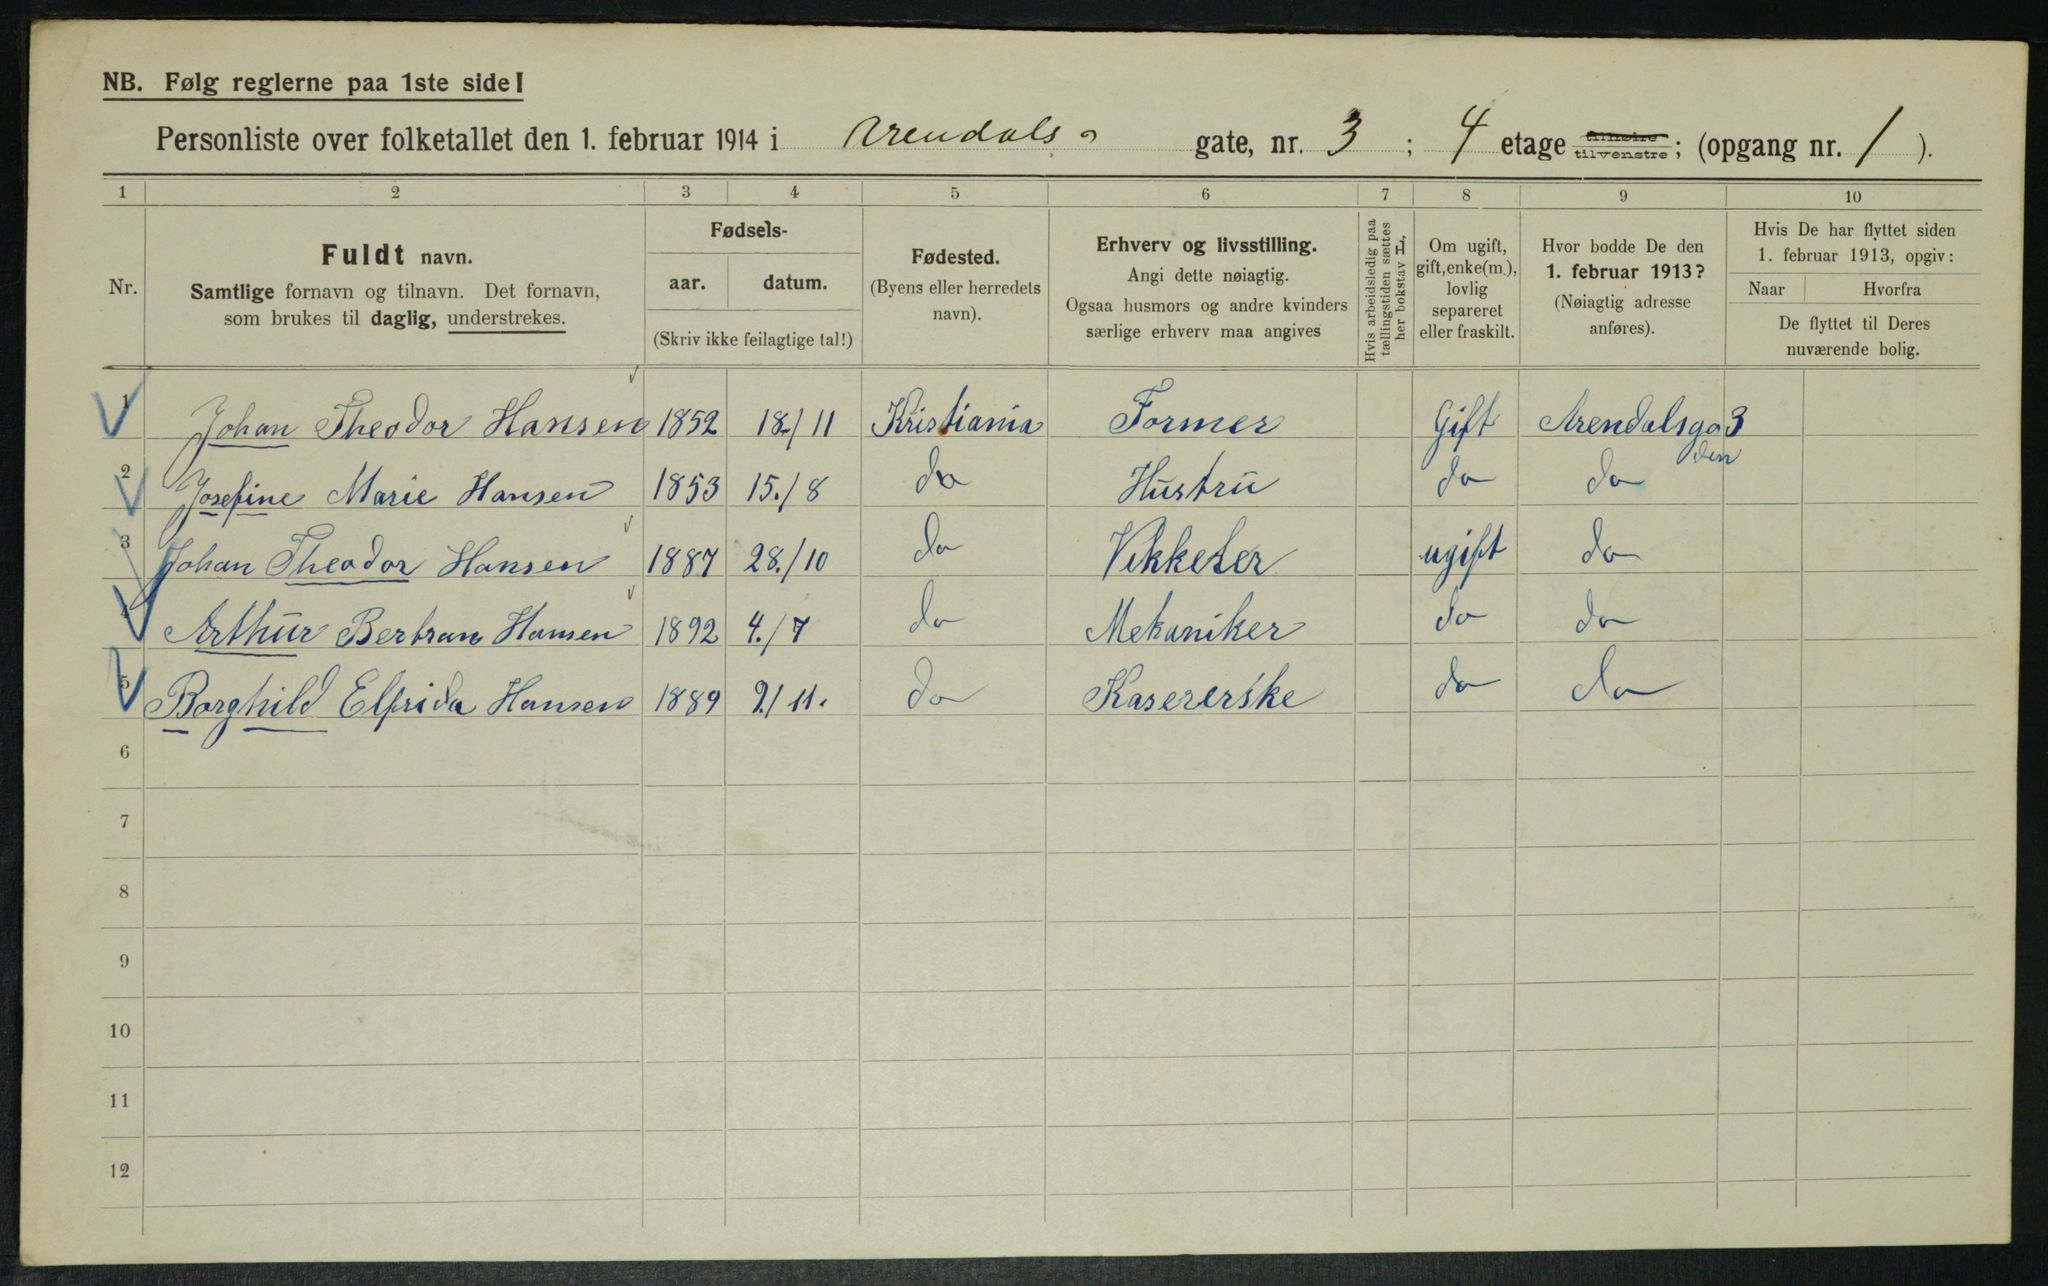 NB. Følg reglerne paa 1ste side!
Personliste over folketallet den 1. februar 1914 i Arendals gate, nr. 3 ; 4 etage tilhøire tilvenstre ; (opgang nr. 1 ).
1 2 3 4 5 6 7 8 9 10
Nr.
Fuldt navn.
Samtlige fornavn og tilnavn. Det fornavn,
som brukes til daglig, understrekes.
Fødsels-
aar. datum.
(Skriv ikke feilagtige tal!)
Fødested.
(Byens eller herredets
navn).
Erhverv og livsstilling.
Angi dette nøiagtig.
Ogsaa husmors og andre kvinders
særlige erhverv maa angives
Hvis arbeidsledig paa
tællingstiden sættes
her bokstav L,
Om ugift,
gift, enke(m.),
lovlig
separeret
eller fraskilt.
Hvor bodde De den
1. februar 1913?
(Nøiagtig adresse
anføres).
Hvis De har flyttet siden
1. februar 1913, opgiv:
Naar Hvorfra
De flyttet til Deres
nuværende bolig.
1 Johan Theodor Hansen 1852 18./11 Kristiania Former Gift Arendalsga 3
2 Josefine Marie Hansen 1853 15./8 do Hustru do do
3 Johan Theodor Hansen 1887 28./10 do Vekkeler ugift do
4 Arthur Bertram Hansen 1892 4./7 do Mekaniker do do
5 Borghild Elfrida Hansen 1889 9./11. do Kasererske do do
6
7
8
9
10
11
12